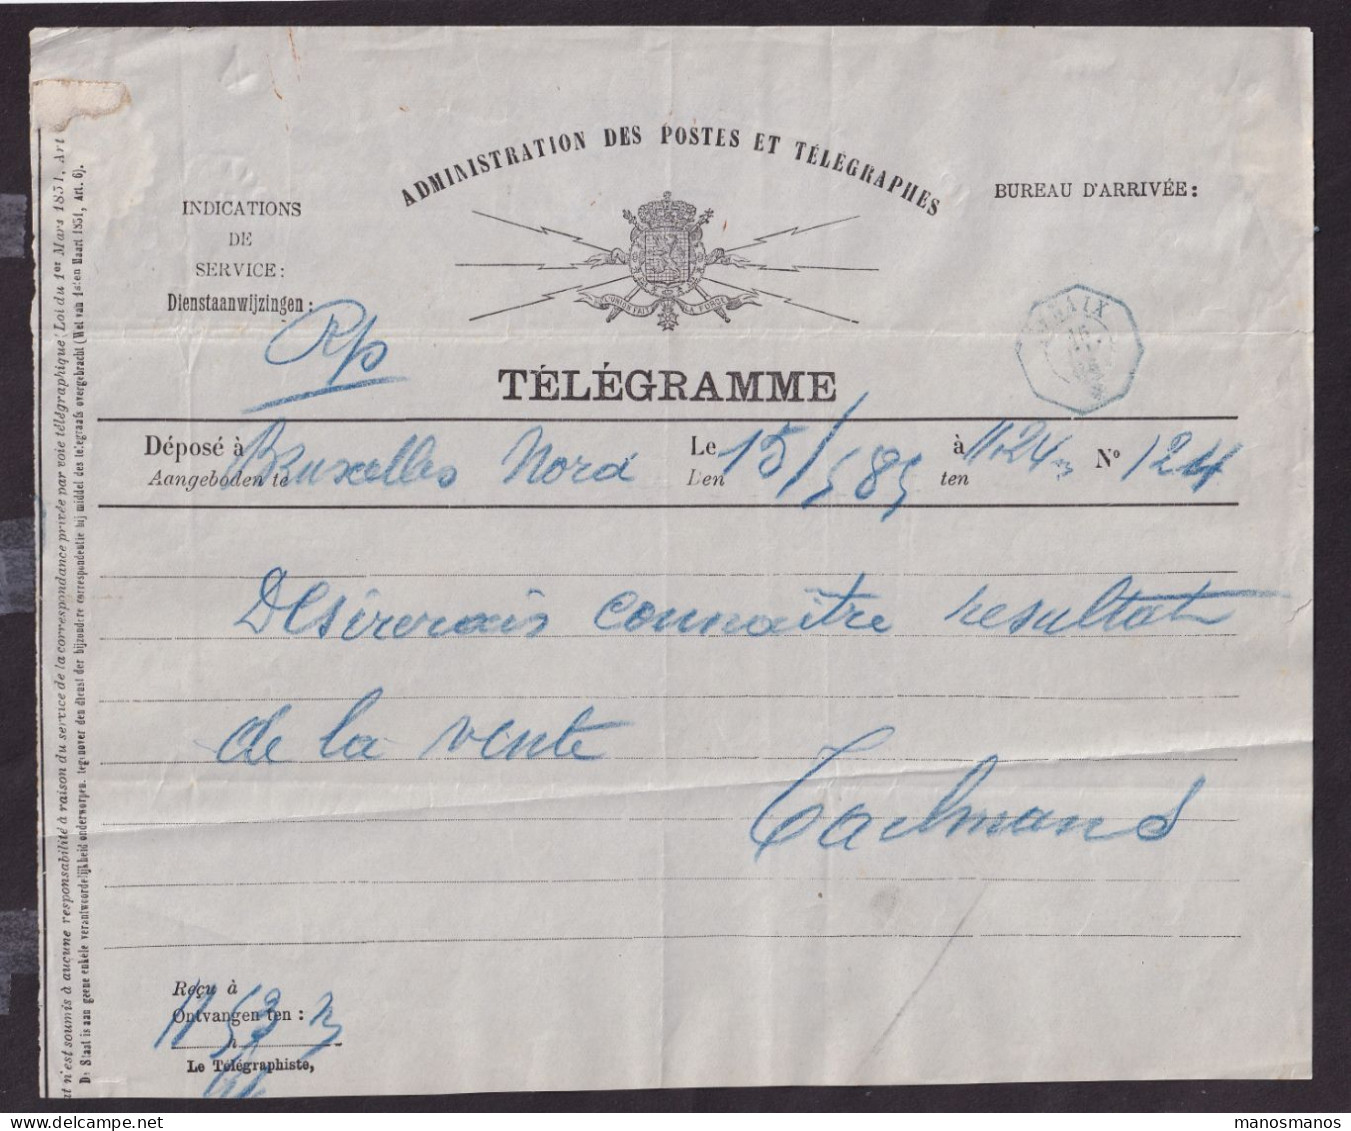 ADMINISTRATION DES POSTES ET TÉLÉGRAPHES
INDICATIONS
DE
SERVICE:
Dienstaanwijzingen:
BUREAU D'ARRIVÉE:
L'UNION FAIT LA FORCE
Rp
TÉLÉGRAMME
Déposé à Bruxelles Nord Le 15/5 85 à 11.24 N° 124
Aangeboden te Den ten
Desirerais connaitre resultat
de la vente
Taelmans
Reçu à
Ontvangen ten: 11 53
Le Télégraphiste,
n'est soumis à aucune responsabilité à raison du service de la correspondance privée par voie télégraphique (Loi du 1er Mars 1851, Art
De Staat is aan geene enkele verantwoordelijkheid onderworpen, tegenover den dienst der bijzondere correspondentie bij middel des telegraafs overgebracht (Wet van 1sten Maart 1851, Art. 6).
manosmanos